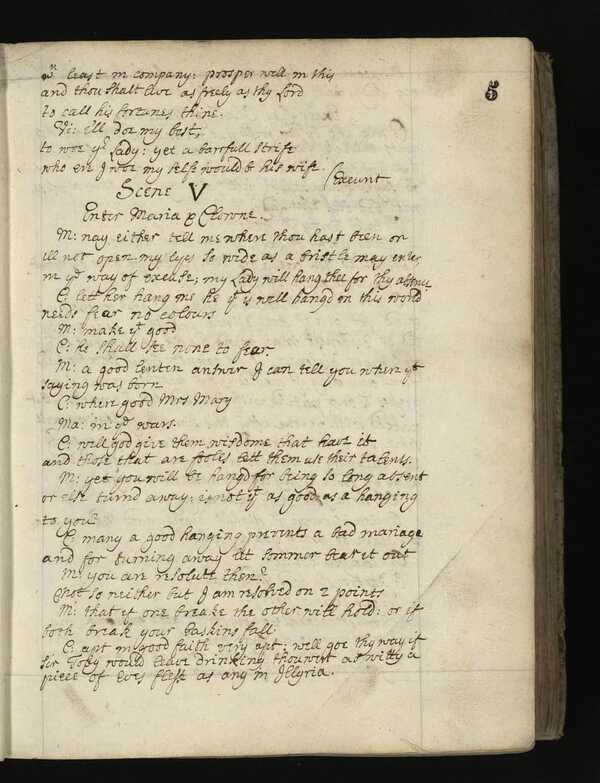 5
least in company: prosper well in this
and thou shalt live as freely as thy Lord
to call his fortunes thine.
Vi: ile doe my best,
to woe yr Lady: yet a barrfull strife
who ere I woe my selfe would be his wife.
(exeunt
Scene V
Enter Maria & Clowne.
M: nay either tell me where thou hast been or
ill not open my lyes so wide as a bristle may enter
in ye way of excuse; my Lady will hang thee for thy absence
C: lett her hang me he yt is well hangd in this world
needs fear no colours
M: make yt good
C: he shall see none to fear.
M: a good lenten answer I can tell you where yt
saying was born
C: where good Mrs Mary
Ma: in ye wars.
C: well god give them wisdome that have it
and those that are fooles lett them use their talents.
M: yet you will be hangd for being so long absent
or else turnd away; is not yt as good as a hanging
to you?
C: many a good hanging prevents a bad mariage
and for turning away let sommer bear it out
M: you are resolute then?
C: not so neither but I am resolved on 2 points
M: that if one breake the other will hold: or if
both break your Gaskins fall
C: apt in good faith very apt: well goe thy way if
Sir Toby would leave drinking thou wert as witty a
piece of Eves flesh as any in Illyria.